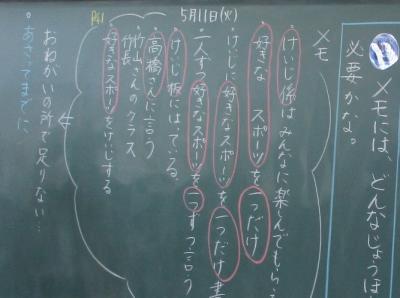 メモには、どんなじょうほ
必要かな。
メモ
5月11日(火)
P41
・けいじ係はみんなに楽しんでもらう
・好きなスポーツを一つだけ
・けいじに好きなスポーツを一つだけ書
・一人ずつ好きなスポーツを一つずつ言う
・けいじ板にはっている。
・高橋さんに言う
・竹山さんのクラス
好きなスポーツをけいじする
おねがいの所で足りない…
。あさってまでに